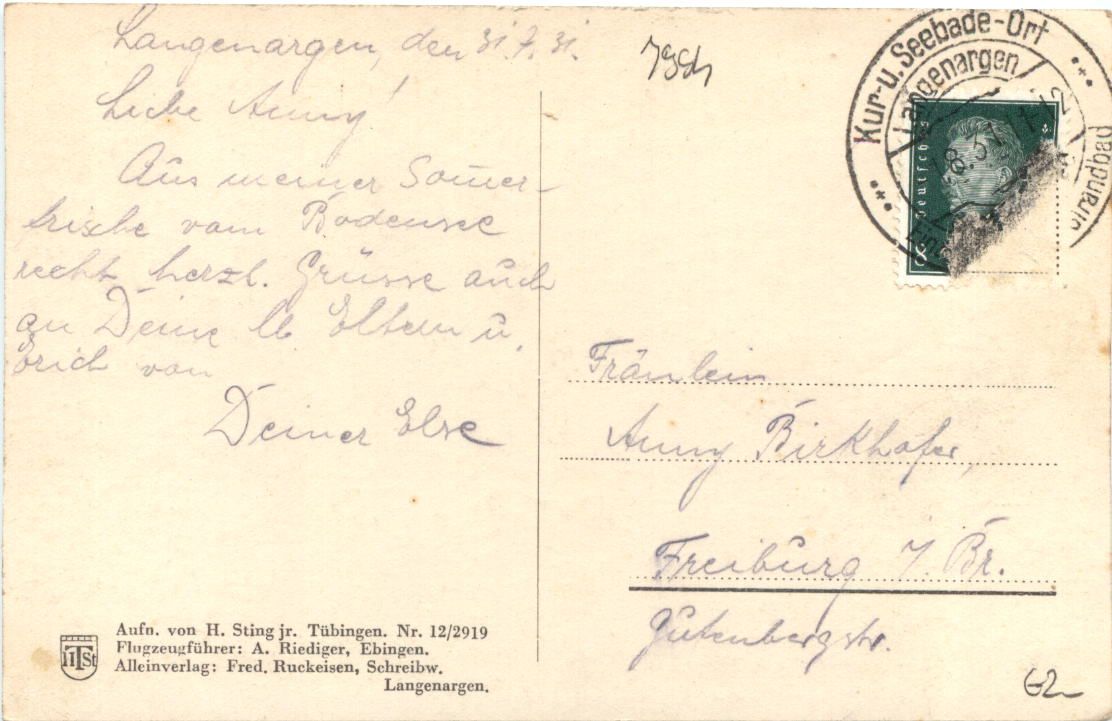 Langenargen, den 31.7.31.
Liebe Anny!
Aus meiner Somer-
frische vom Bodensee
recht herzl. Grüsse auch
an Deine lb. Eltern u.
Erich von
Deiner Else
Kur-u. Seebade-Ort
Langenargen
Strandbad
8.31.11-12
Deutsches
8
Fräulein
Anny Birkhofer,
Freiburg i. Br.
Gutenbergstr.
HSt
Aufn. von H. Sting jr. Tübingen. Nr. 12/2919
Flugzeugführer: A. Riediger, Ebingen.
Alleinverlag: Fred. Ruckeisen, Schreibw.
Langenargen.